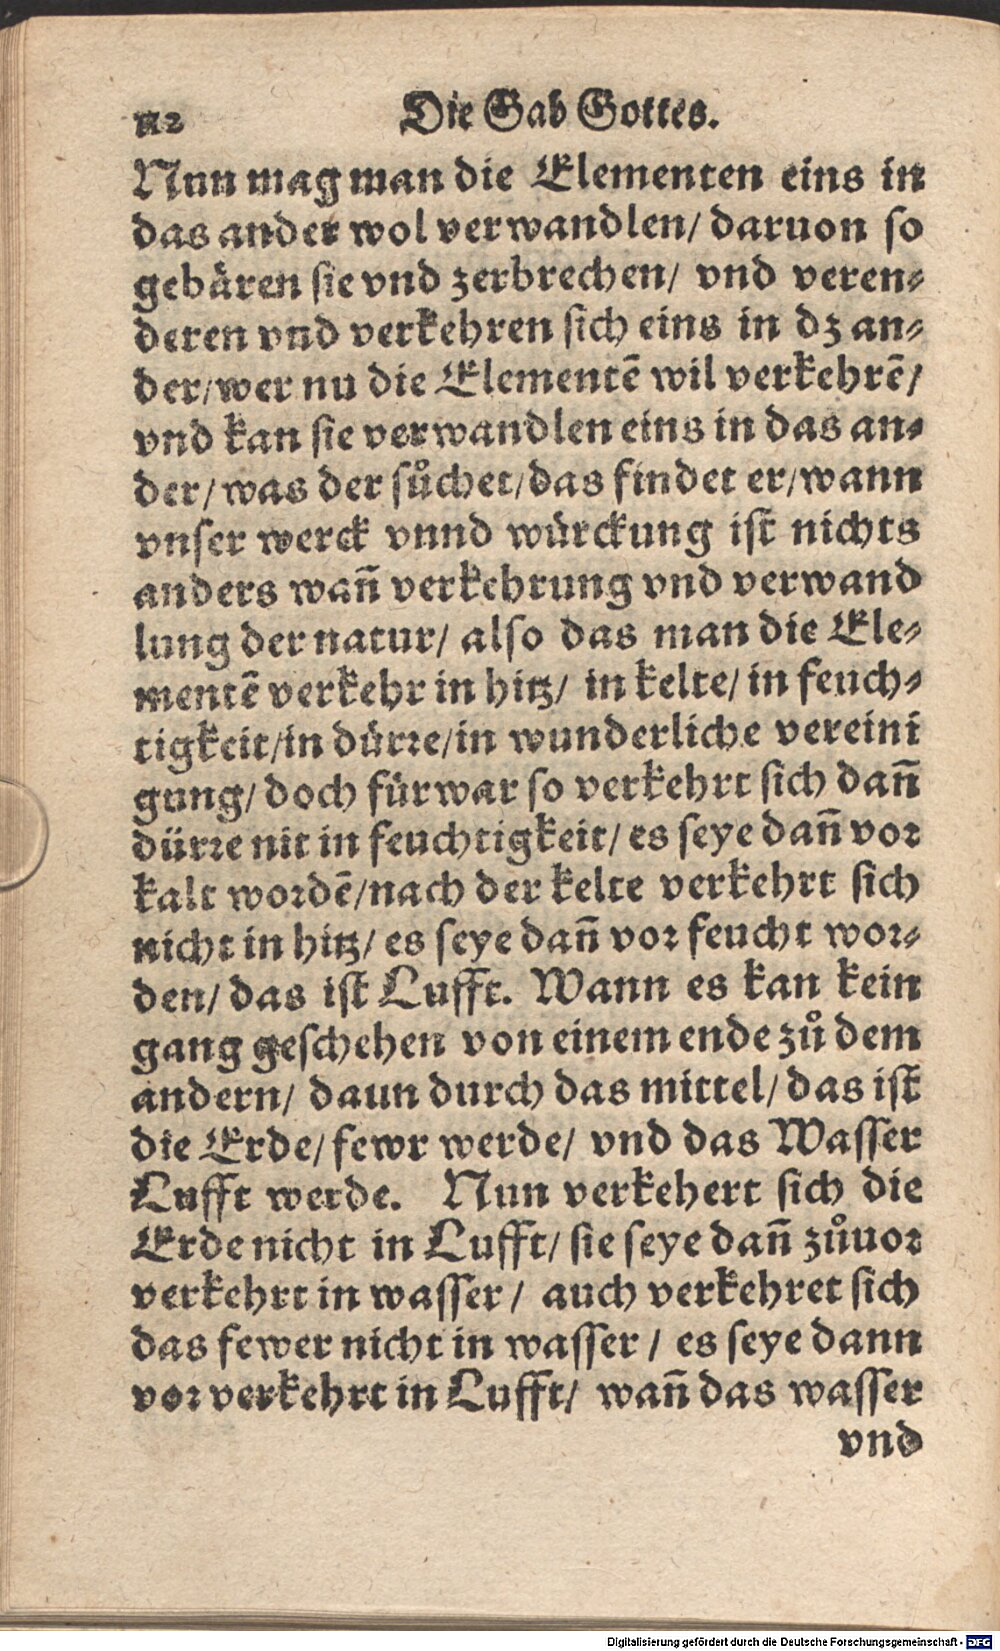 112 Die Gab Gottes.
Nun mag man die Elementen eins in
das ander wol verwandlen/ daruon so
gebären sie vnd zerbrechen/ vnd veren⸗
deren vnd verkehren sich eins in dz an⸗
der/wer nu die Elementē wil verkehrē/
vnd kan sie verwandlen eins in das an⸗
der/was der sůchet/das findet er/wann
vnser werck vnnd würckung ist nichts
anders wañ verkehrung vnd verwand
lung der natur/ also das man die Ele⸗
mentē verkehr in hitz/ in kelte/in feuch⸗
tigkeit/in dürre/in wunderliche vereini
gung/doch fürwar so verkehrt sich dañ
dürre nit in feuchtigkeit/es seye dañ vor
kalt wordē/nach der kelte verkehrt sich
nicht in hitz/es seye dañ vor feucht wor⸗
den/das ist Lufft. Wann es kan kein
gang geschehen von einem ende zů dem
andern/ daun durch das mittel/das ist
die Erde/fewr werde/ vnd das Wasser
Lufft werde. Nun verkehert sich die
Erde nicht in Lufft/sie seye dañ zůuor
verkehrt in wasser/ auch verkehret sich
das fewer nicht in wasser/ es seye dann
vor verkehrt in Lufft/ wañ das wasser
vnd
Digitalisierung gefördert durch die Deutsche Forschungsgemeinschaft - DFG